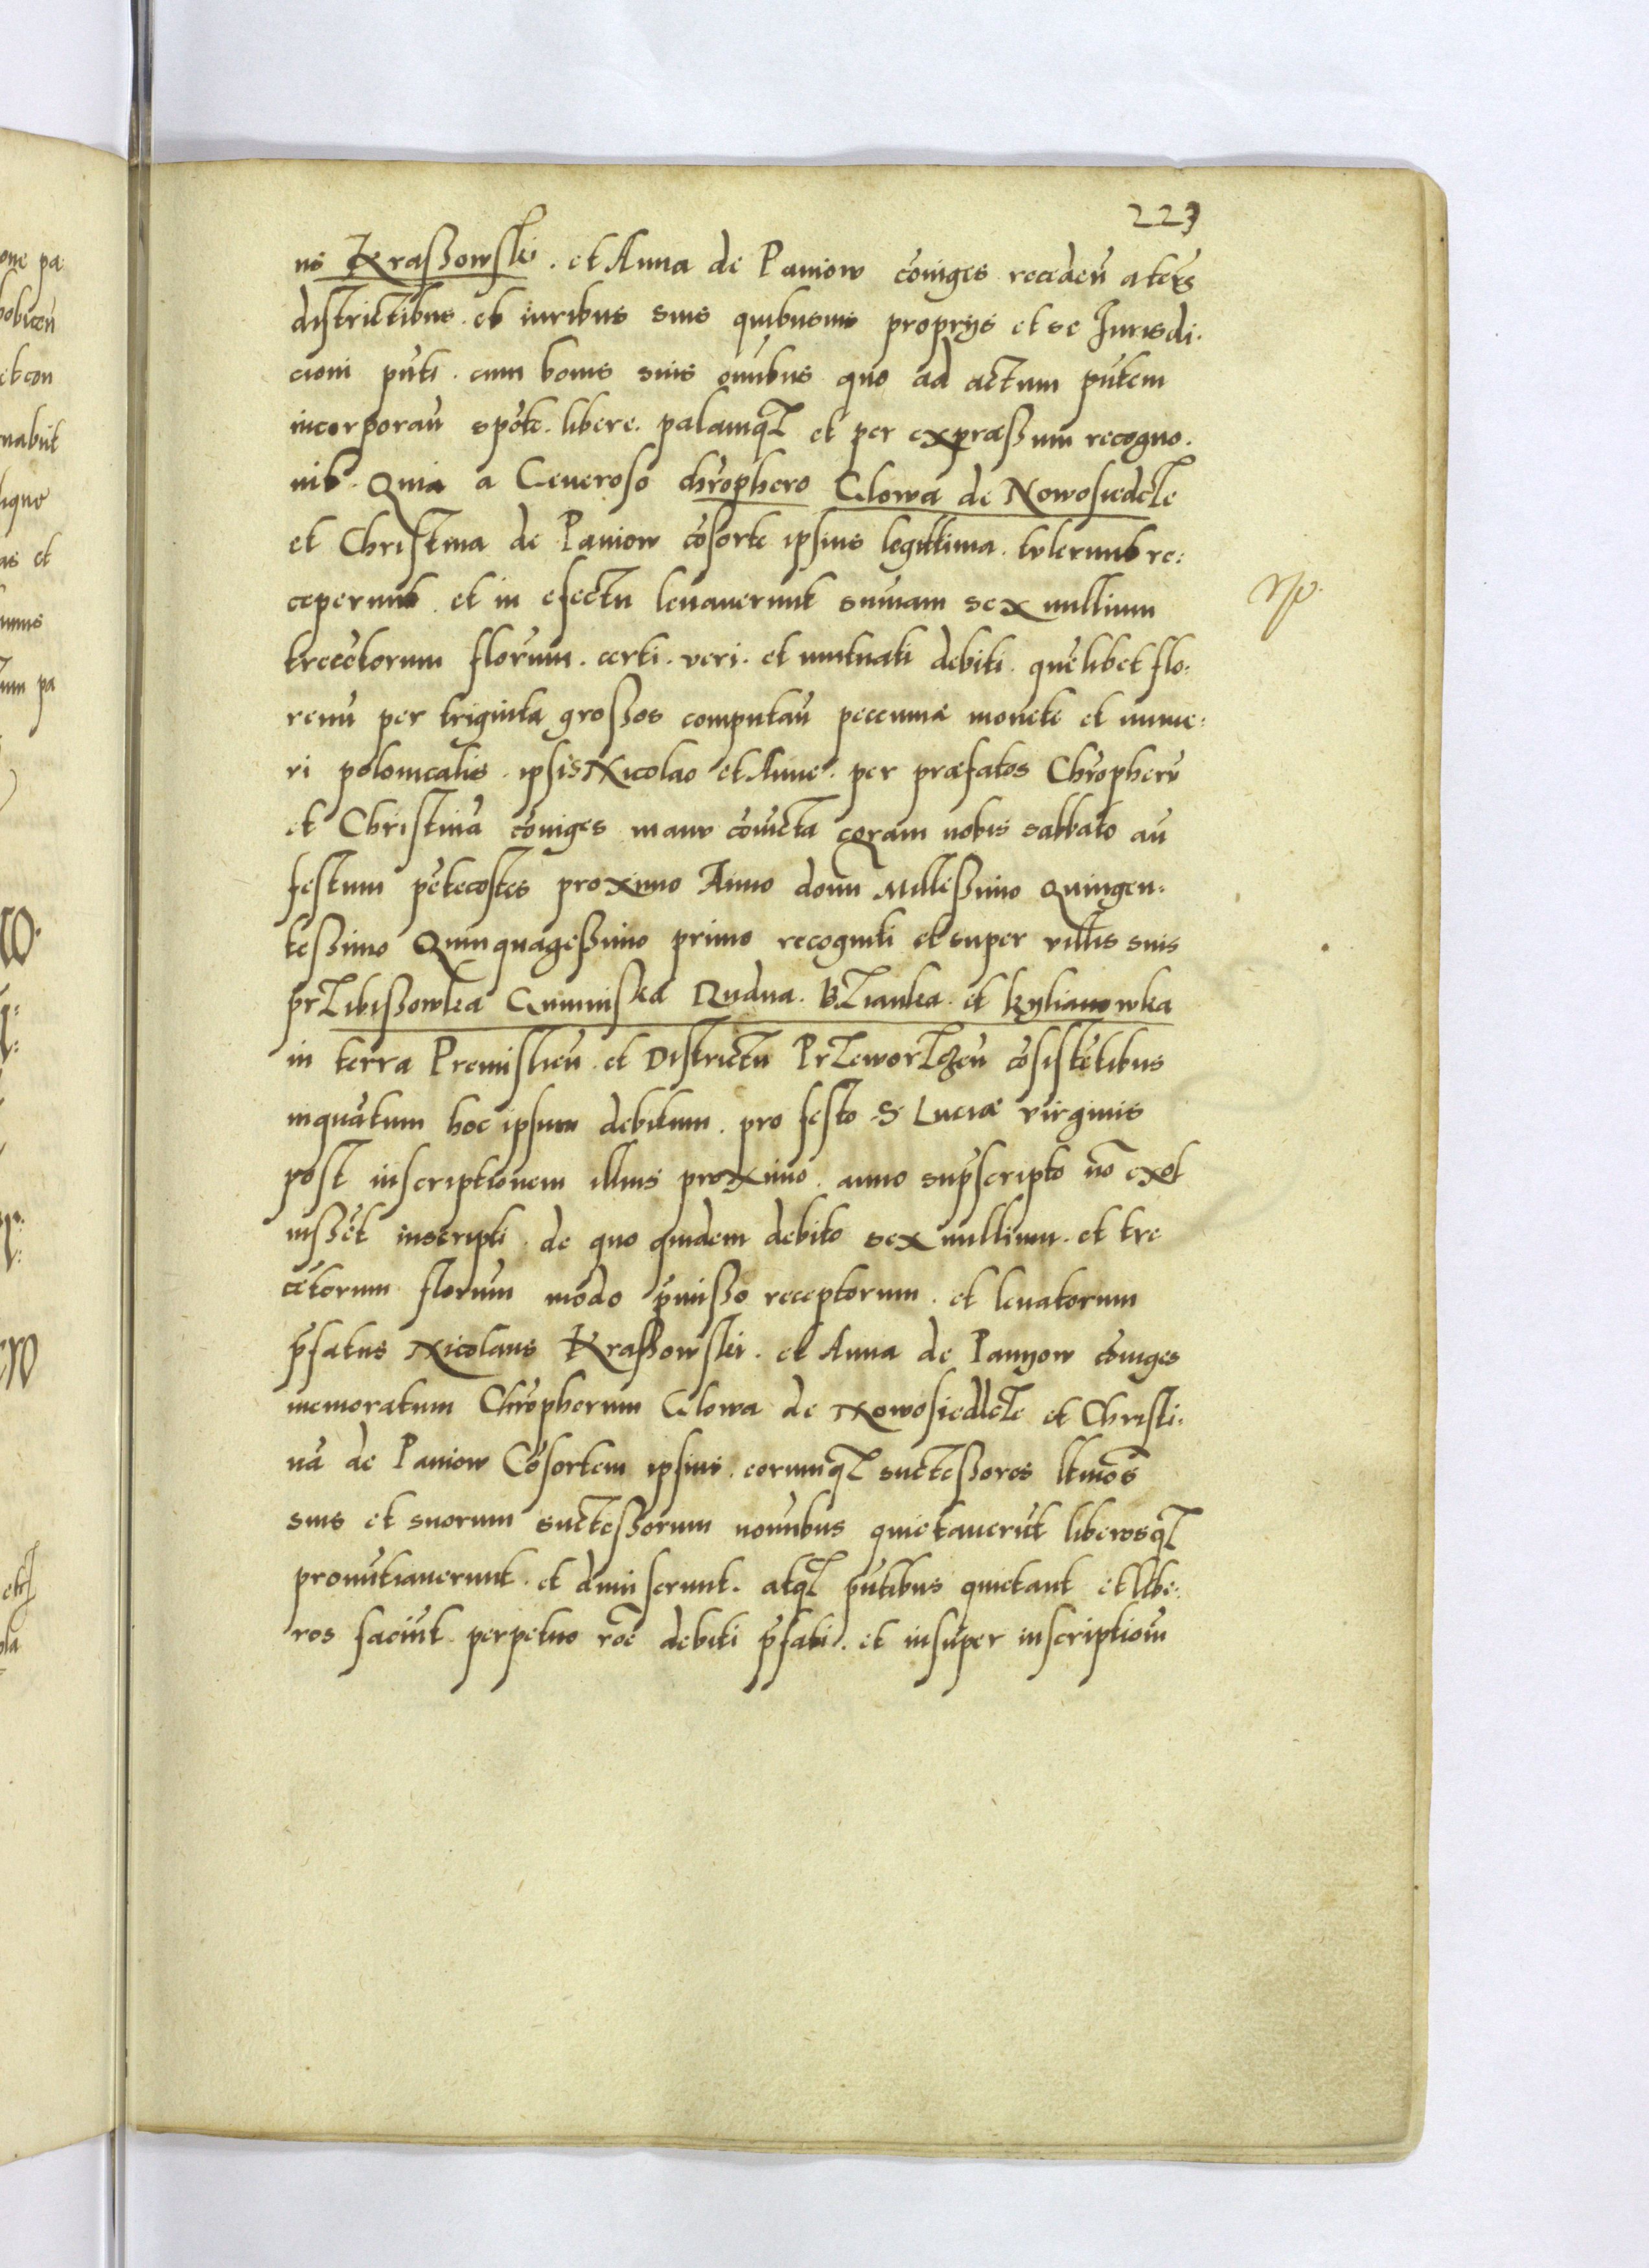 223
us Kraßowski . et Anna de Paniow cōiuges recedeñ a terŝ
districtibus . et iuribus suis quibusuis proprÿs et se Jurisdi.
cioni pñti . cum bonis suis oñibus quo ad actum pñtem
incorporañ spōte . libere . palamqȝ et per expræßum recogno.
uit . Quia a Generoso chrōphero Glowa de Nowosiedcze
et Christina de Paniow cōsorte ipsius legittima . tulerunt re:
ceperunt . et in efectu leuauerunt sumam sex millium
trecētorum florum . certi . veri . et mutuati debiti . quēlibet flo:
renū per triginta großos computañ peccuniæ monete et nume:
ri polonicalis . ipsis Nicolao et Anne . per præfatos Chrōpherū
et Christinā cōiuges manu cōiuncta coram nobis sabbato añ
festum pētecostes proximo Anno doñi Milleßimo Quingen:
teßimo Quinquageßimo primo recogniti et super villis suis
przibißowka Gniewiska Rudna . Bzianka . et kylianowka
in terra Premislieñ . et Districtu Przeworzeñ cōsistētibus
inquātum hoc ipsum debitum . pro festo S Luciæ virginis
post inscriptionem illius proximo . anno supscripto nō exol
uißēt inscripti . de quo quidem debito sex millium . et tre
cētorum florum modo p̄mißo receptorum . et leuatorum
p̄fatus Nicolaus Kraßowski . et Anna de Panyow cōiuges
memoratum Chrōpherum Glowa de Nowosiedlcze et Christi:
nā de Paniow Cōsortem ipsius . eorumqȝ succeßores ltimōs
suis et suorum succeßorum noīnibus quietauerūt liberosqȝ
pronūtiauerunt . et dimiserunt . atqȝ pñtibus quietant et libe:
ros faciūt perpetuo rōe debiti p̄fati . et insuper inscriptionū